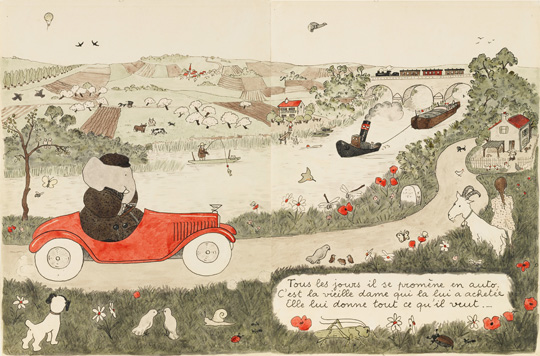 Tous les jours il se promène en auto.
C'est la vieille dame qui la lui a achetée.
Elle lui donne tout ce qu'il veut...